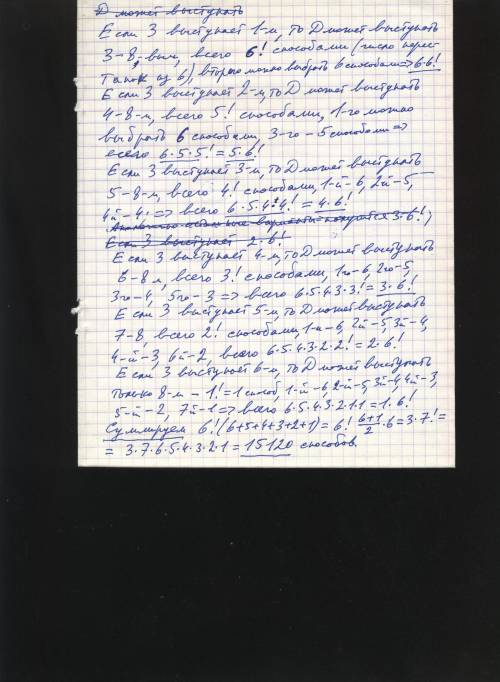 Д может выступать
Если З выступает 1-м, то Д может выступать
3-8-вым, всего 6! способами (число перес-
тановок из 6), второго можно выбрать 6 способами => 6·6!
Если З выступает 2-м, то Д может выступать
4-8-м, всего 5! способами, 1-го можно
выбрать 6 способами, 3-го - 5 способами =>
всего 6·5·5! = 5·6!
Если З выступает 3-м, то Д может выступать
5-8-м, всего 4! способами, 1-й-6, 2й-5,
4й-4. => всего 6·5·4·4! = 4·6!
Если З выступает 2·6!
Если З выступает 4-м, то Д может выступать
6-8 м, всего 3! способами, 1го-6, 2го-5,
3го-4, 5го-3 => всего 6·5·4·3·3! = 3·6!
Если З выступает 5-м, то Д может выступать
7-8, всего 2! способами, 1-й-6, 2й-5, 3й-4,
4-й-3, 6й-2, всего 6·5·4·3·2·2! = 2·6!
Если З выступает 6-м, то Д может выступать
только 8-м - 1! = 1 способ, 1-й-6, 2-й-5, 3й-4, 4й-3,
5-й-2, 7й-1 => всего 6·5·4·3·2·1·1 = 1·6!
Суммируем 6!(6+5+4+3+2+1) = 6! 6+1/2 ·6 = 3·7! =
= 3·7·6·5·4·3·2·1 = 15120 способов.